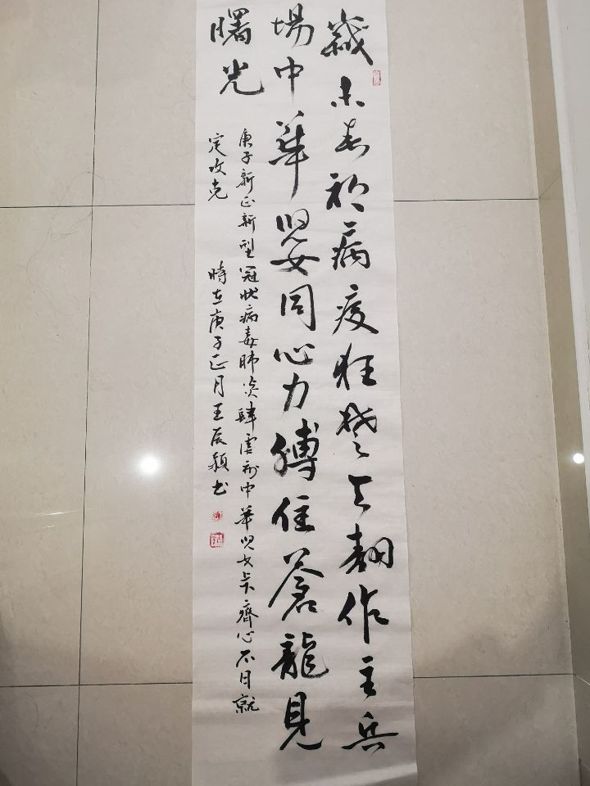 歲末春初病疫狂楚天翻作主兵
場中華兒女同心力縛住蒼龍見
曙光
庚子新正新型冠狀病毒肺炎肆虐中華兒女齊心不日就
定攻克 時在庚子正月王辰穎书